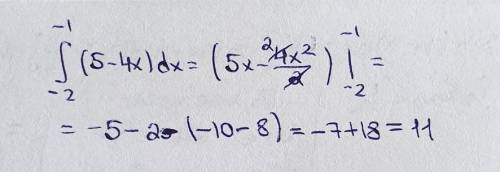 ∫₋₂⁻¹ (5-4x)dx = (5x - ²4x²/2) |₋₂⁻¹ =
= -5-2-(-10-8) = -7+18 = 11